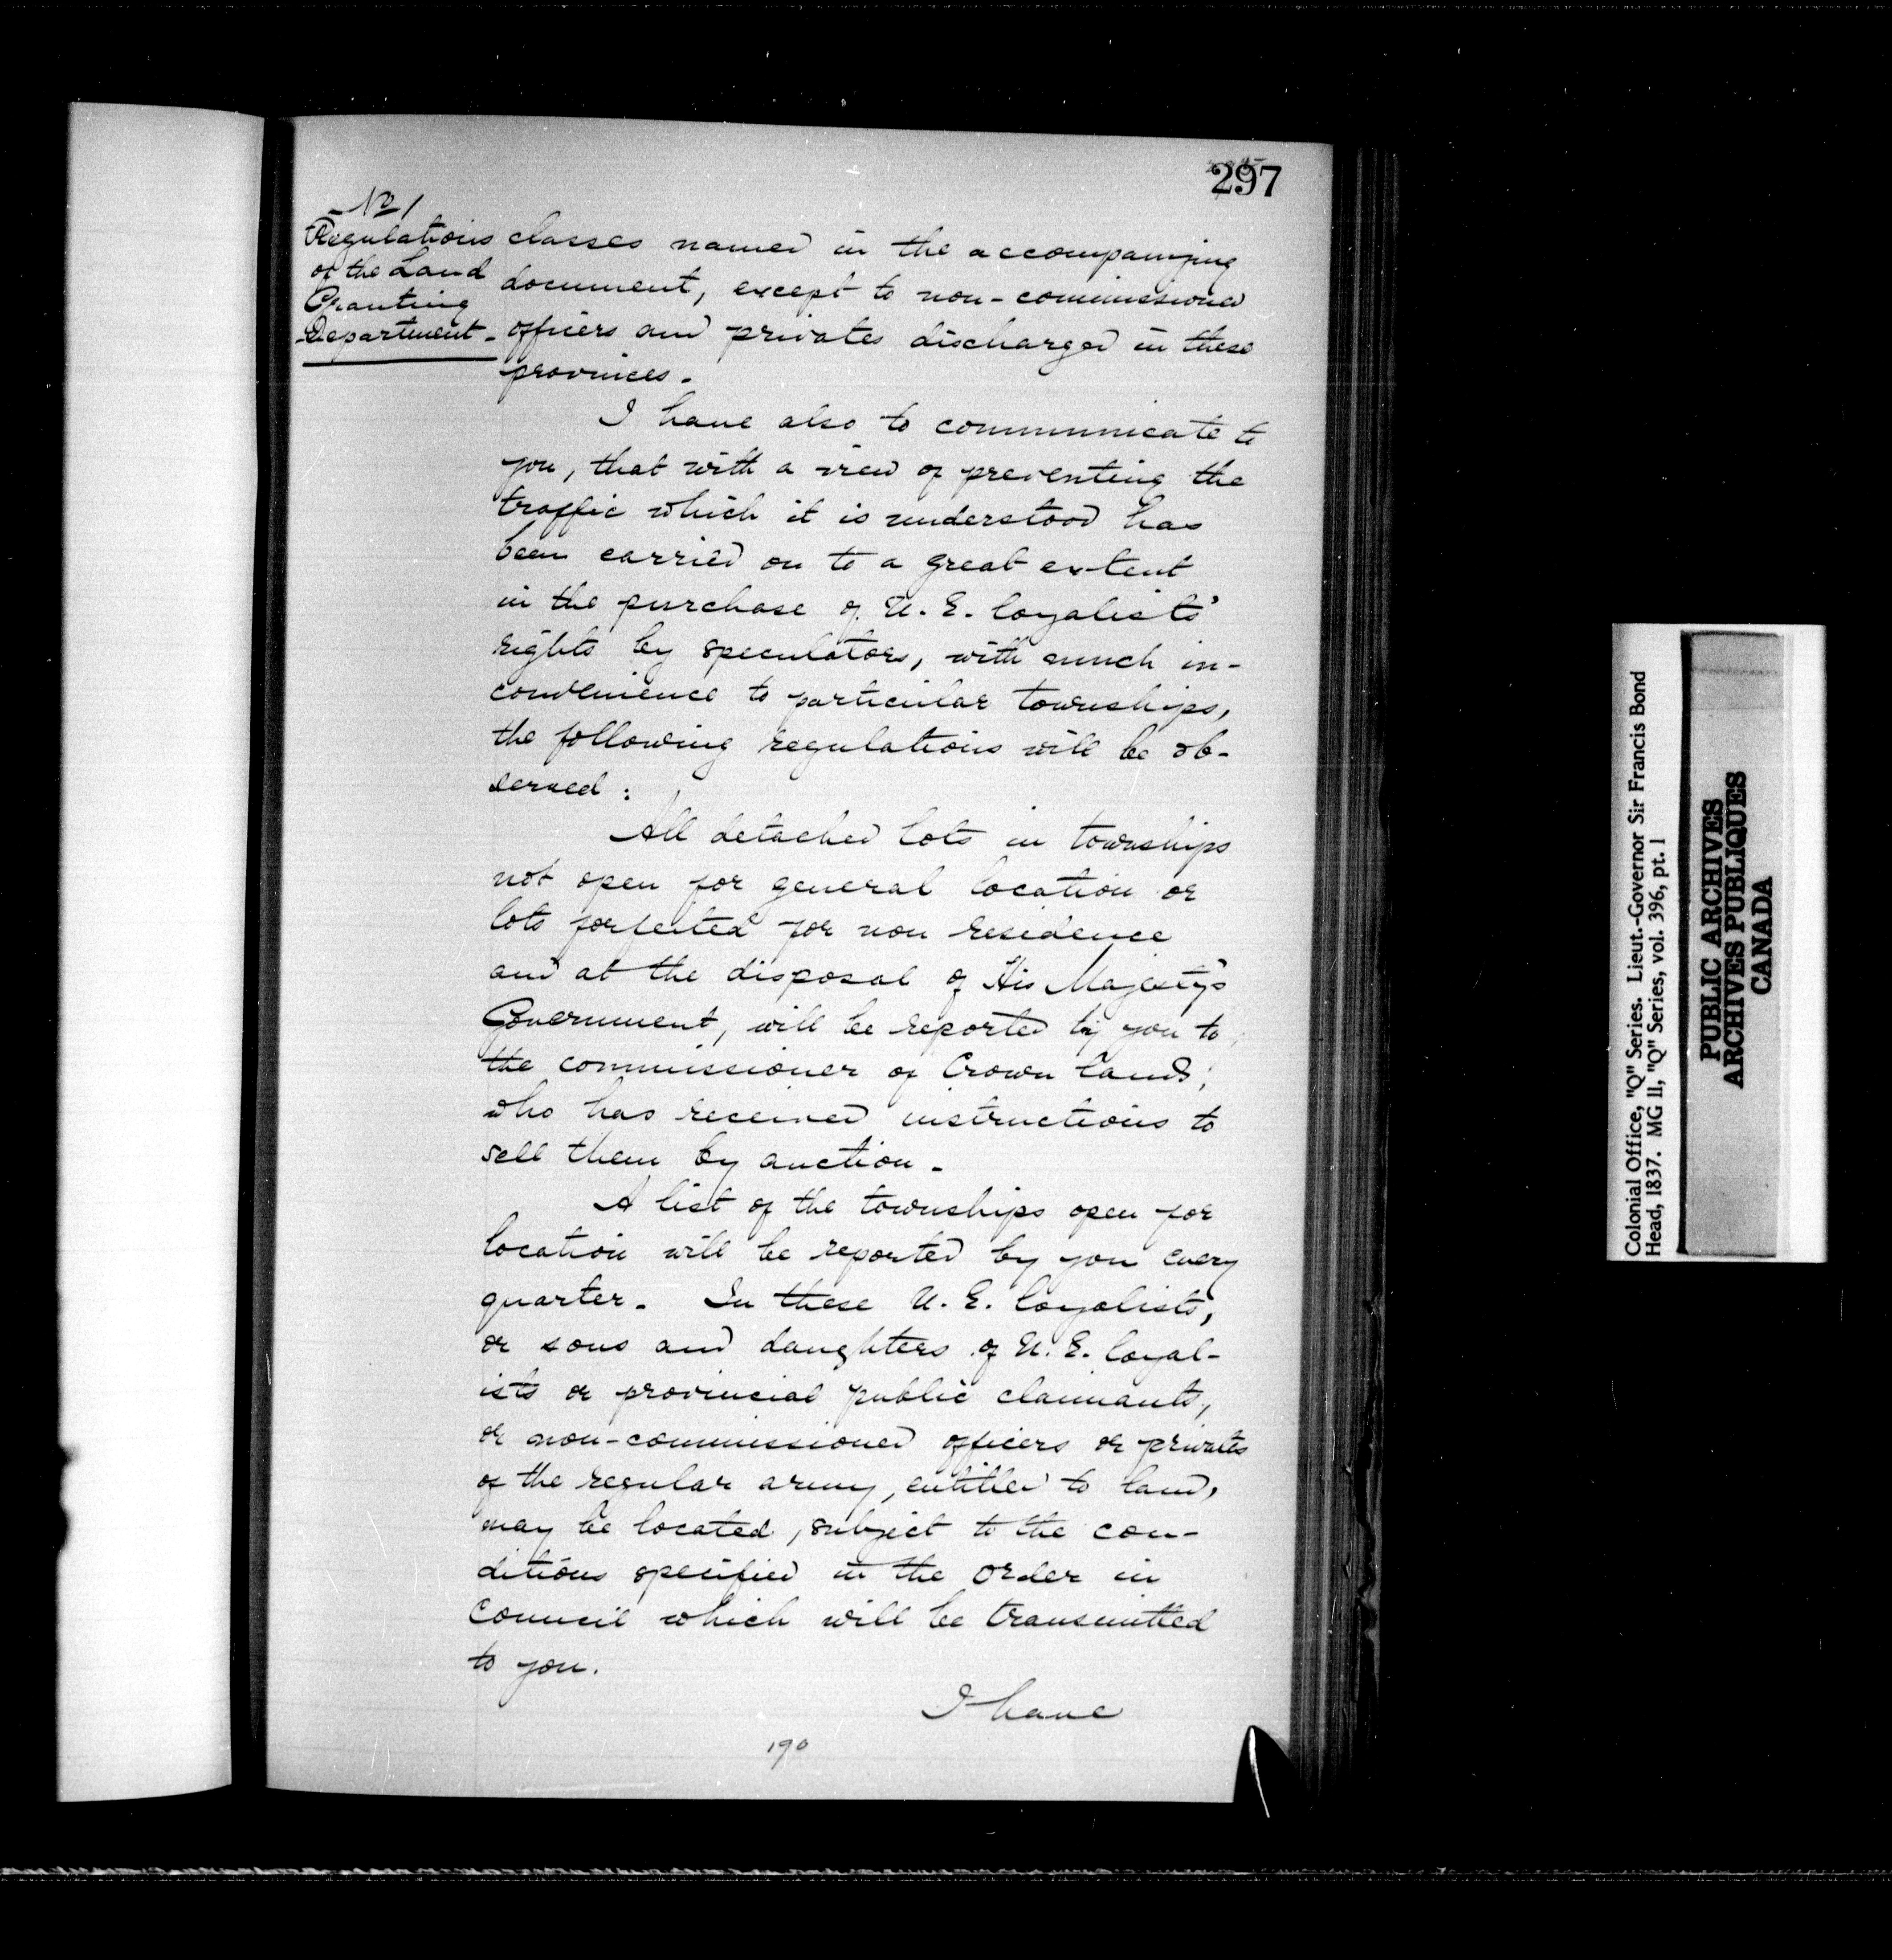 297
No 1
Regulations
of the Land
Granting
Department -
classes named in the accompanying
document, except to non-commissioned
officers and privates discharged in these
provinces -
I have also to communicate to
you, that with a view of preventing the
traffic which it is understood has
been carried on to a great extent
in the purchase of U. E. loyalists'
rights by speculators, with much in-
convenience to particular townships,
the following regulations will be ob-
served :
All detached lots in townships
not open for general location or
lots forfeited for non residence
and at the disposal of His Majesty's
Government, will be reported by you to
the commissioner of Crown lands,
who has received instructions to
sell them by auction -
A list of the townships open for
location will be reported by you every
quarter - In these U. E. loyalists,
or sons and daughters of U. E. loyal-
ists or provincial public claimants,
or non-commissioned officers or privates
of the regular army, entitled to land,
may be located, subject to the con-
ditions specified in the order in
council which will be transmitted
to you.
I have
190
Colonial Office, "Q" Series. Lieut.-Governor Sir Francis Bond
Head, 1837. MG 11, "Q" Series, vol. 396, pt. 1
PUBLIC ARCHIVES
ARCHIVES PUBLIQUES
CANADA